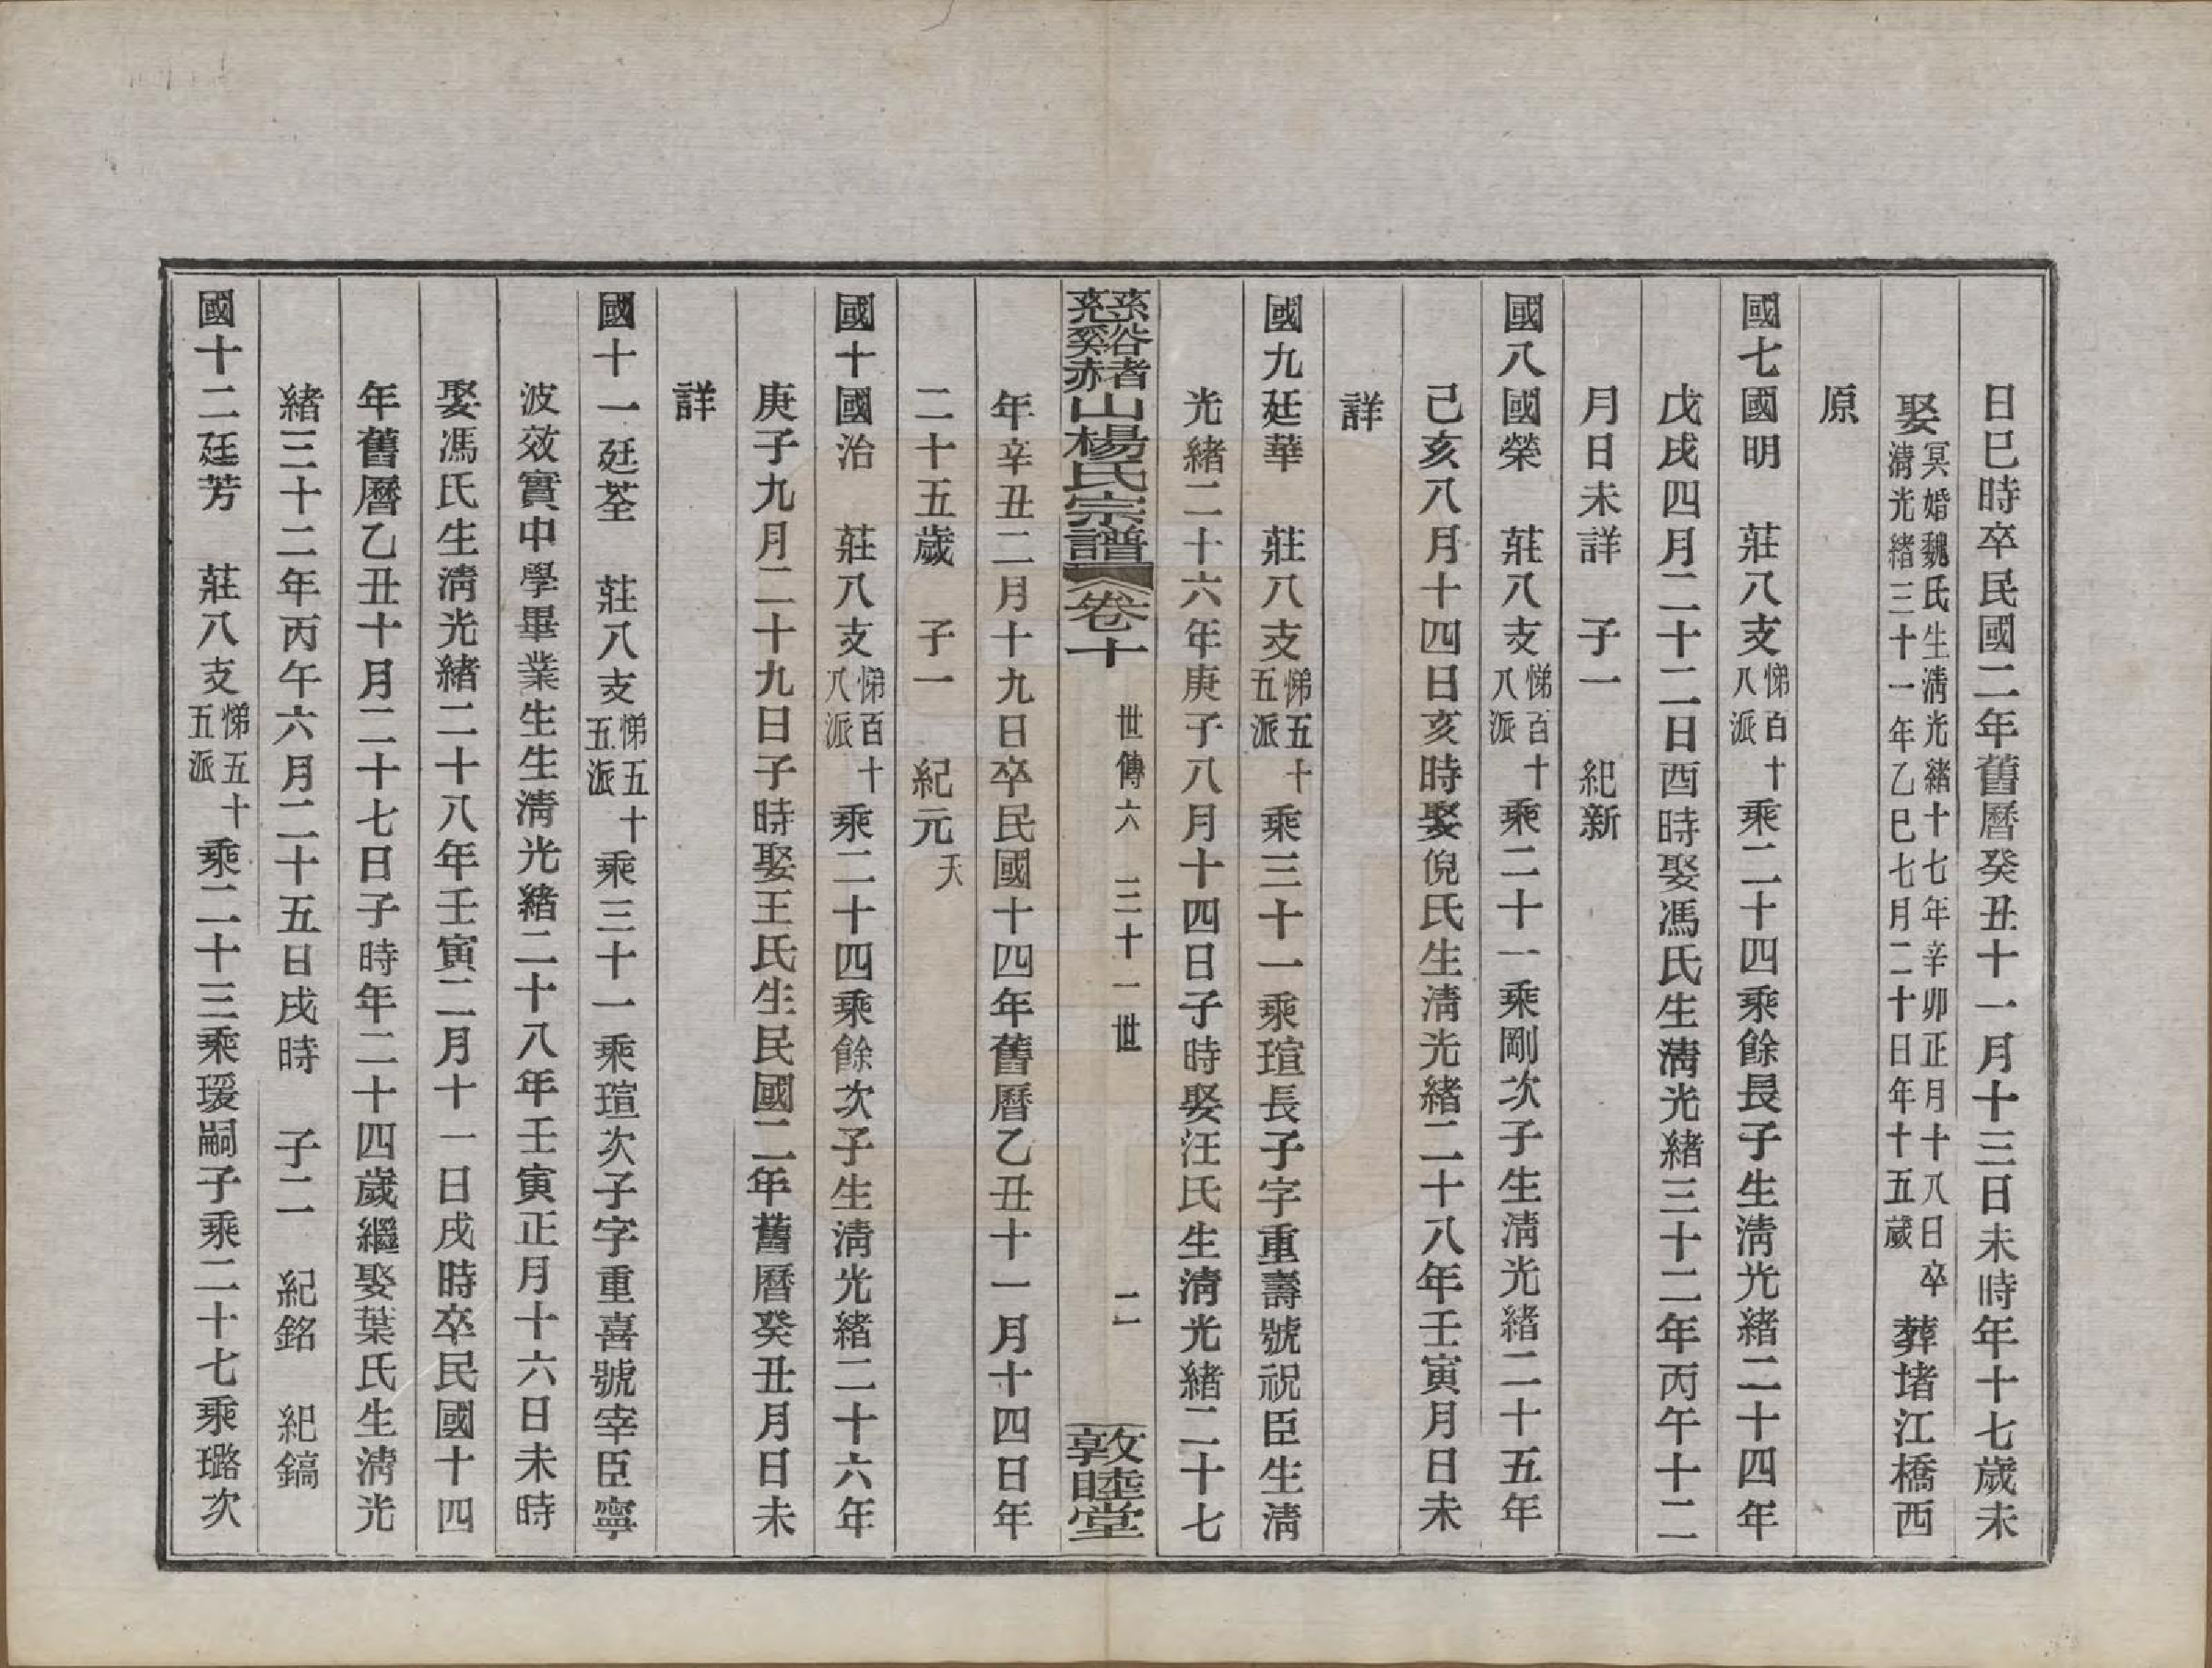 日巳時卒民國二年舊曆癸丑十一月十三日未時年十七歲未
娶冥婚魏氏生淸光緒十七年辛卯正月十八日卒淸光緒三十一年乙巳七月二十日年十五歲葬堵江橋西
原
國七國明　莊八支悌百十八派乘二十四乘餘長子生淸光緒二十四年
戊戌四月二十二日酉時娶馮氏生淸光緒三十二年丙午十二
月日未詳　子一　紀新
國八國榮　莊八支悌百十八派乘二十一乘剛次子生淸光緒二十五年
己亥八月十四日亥時娶倪氏生淸光緒二十八年壬寅月日未
詳
國九廷華　莊八支悌五十五派乘三十一乘瑄長子字重壽號祝臣生淸
光緒二十六年庚子八月十四日子時娶汪氏生淸光緒二十七
慈谿赭山楊氏宗譜　卷十　世傳六　三十一世　二　敦睦堂
年辛丑二月十九日卒民國十四年舊曆乙丑十一月十四日年
二十五歲　子一　紀元夭
國十國治　莊八支悌百十八派乘二十四乘餘次子生淸光緒二十六年
庚子九月二十九日子時娶王氏生民國二年舊曆癸丑月日未
詳
國十一廷荃　莊八支悌五十五派乘三十一乘瑄次子字重喜號宰臣寧
波效實中學畢業生生淸光緒二十八年壬寅正月十六日未時
娶馮氏生淸光緒二十八年壬寅二月十一日戌時卒民國十四
年舊曆乙丑十月二十七日子時年二十四歲繼娶葉氏生淸光
緒三十二年丙午六月二十五日戌時　子二　紀銘　紀鎬
國十二廷芳　莊八支悌五十五派乘二十三乘瑗嗣子乘二十七乘璐次